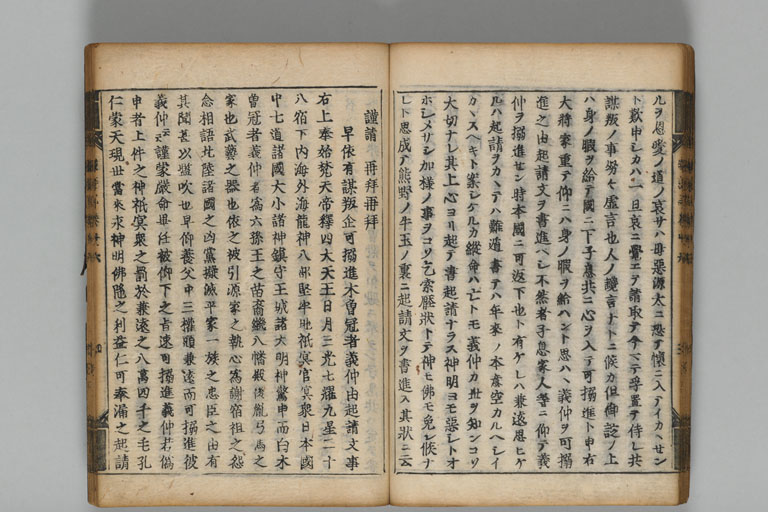 ルヲ恩愛ノ道ノ哀サハ母惡源太ニ恐テ懷ニ入テイカヽセン
ト歎申シカハ一旦哀ニ覺エテ請取テ今マテ孚置テ侍レ共
謀叛ノ事努々虛言也人ノ讒言ナトニ候カ但御諚ノ上
ハ身ノ暇ヲ給テ國ニ下子息共ニ心ヲ入テ可搦進ト申右
大將家重テ仰ニハ身ノ暇ヲ給ハント思ハヽ義仲ヲ可搦
進之由起請文ヲ書進ヘシ不然者子息家人等ニ仰テ義
仲ヲ搦進セン時本國ニ可返下也ト有ケレハ兼遠思ヒケ
ルハ起請ヲカヽテハ難遁書テハ年來ノ本意空カルヘシイ
カヽスヘキト案シケルカ縱命ハ亡トモ義仲カ世ヲ知ンコソ
大切ナレ其上心ヨリ起テ書起請ナラス神明ヨモ惡シトオ
ホシメサシ加樣ノ事ヲコソ乞索厭狀トテ神モ佛モ免シ候ナ
レト思成テ熊野ノ牛玉ノ裏ニ起請文ヲ書進ス其狀ニ云
謹請 再拜再拜
早依有謀叛企可搦進木曾冠者義仲由起請文事
右上奉始梵天帝釋四大天王日月三光七耀九星二十
八宿下內海外海龍神八部堅牢地祇冥官冥衆日本國
中七道諸國大小諸神鎮守王城諸大明神驚申而白木
曾冠者義仲者爲六孫王之苗裔繼八幡殿後胤弓馬之
家也武藝之器也依之被引源家之執心爲謝宿祖之怨
念相語北陸諸國之凶黨擬滅平家一族之忠臣之由有
其聞甚以濫吹也早仰養父中三權頭兼遠而可搦進彼
義仲云云謹蒙嚴命畢任被仰下之旨速可搦進義仲若僞
申者上件之神祇冥衆之罰於兼遠之八萬四千之毛孔
仁蒙天現世當來永神明佛陀之利益仁可奉漏之起請